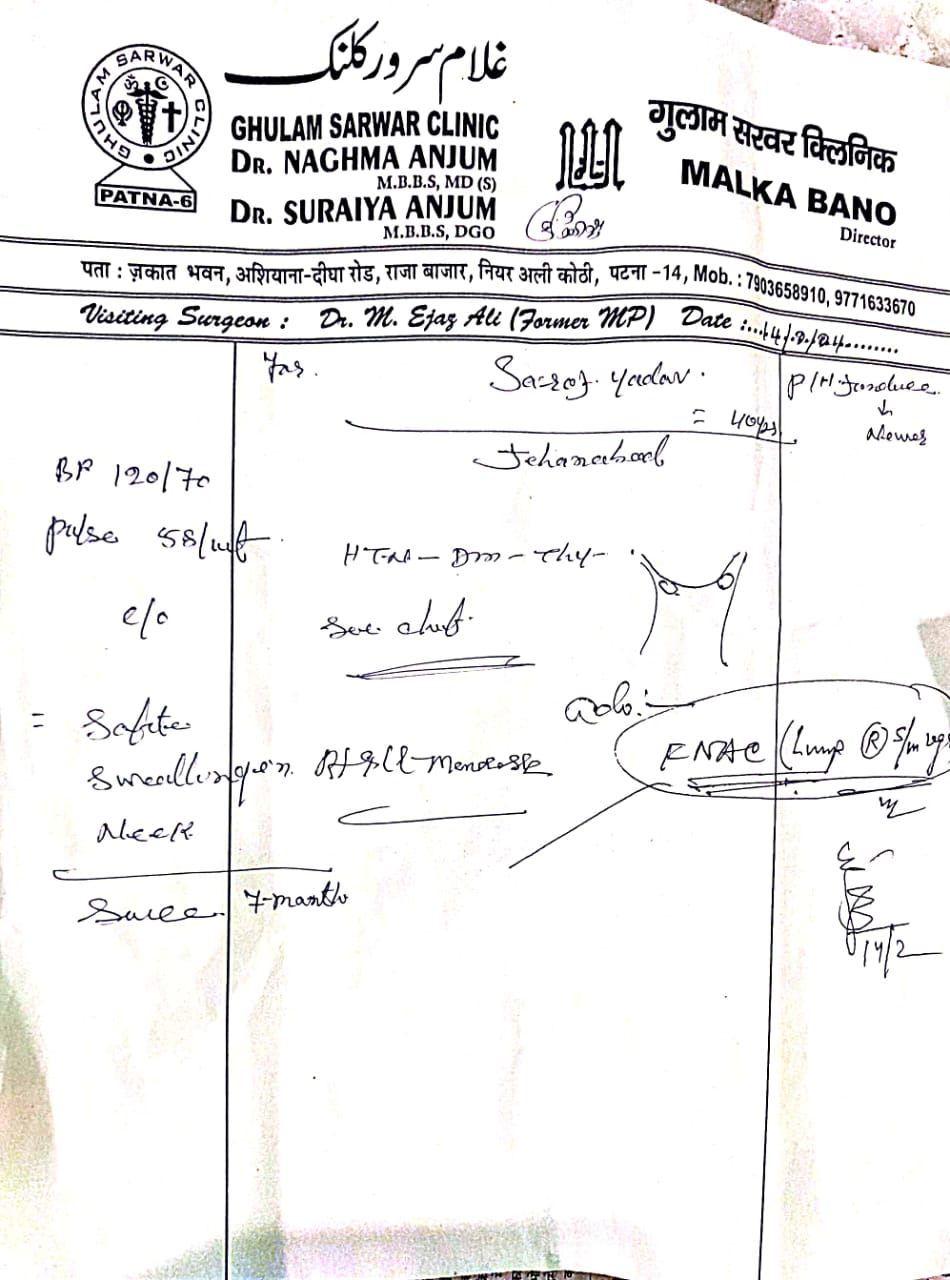 غلام سرور کلنک
GHULAM SARWAR CLINIC
PATNA-6
GHULAM SARWAR CLINIC
DR. NAGHMA ANJUM
M.B.B.S, MD (S)
DR. SURAIYA ANJUM
M.B.B.S, DGO
गुलाम सरवर क्लिनिक
MALKA BANO
Director
पता : ज़कात भवन, अशियाना-दीघा रोड, राजा बाजार, नियर अली कोठी, पटना -14, Mob. : 7903658910, 9771633670
Visiting Surgeon : Dr. M. Ejaz Ali (Former MP) Date :...14/2/24........
Saroj. Yadav.
= 40yrs
Jehanabad
P/H
BP 120/70
Pulse 58/mt
HTN - Dm - Thy -
c/o
=
Swelling in
Neck
Since 7-month
Adv:-
FNAC (Lump (R) S/m
14/2